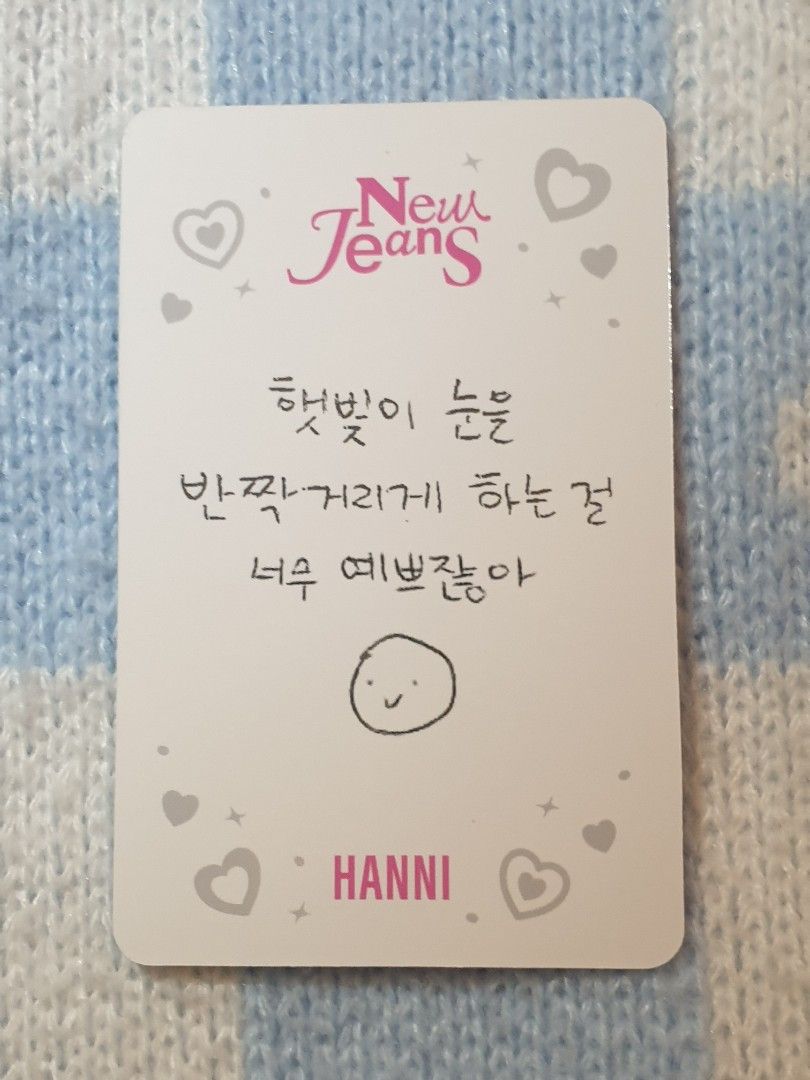 New
Jeans
햇빛이 눈을
반짝거리게 하는 걸
너무 예쁘잖아
HANNI